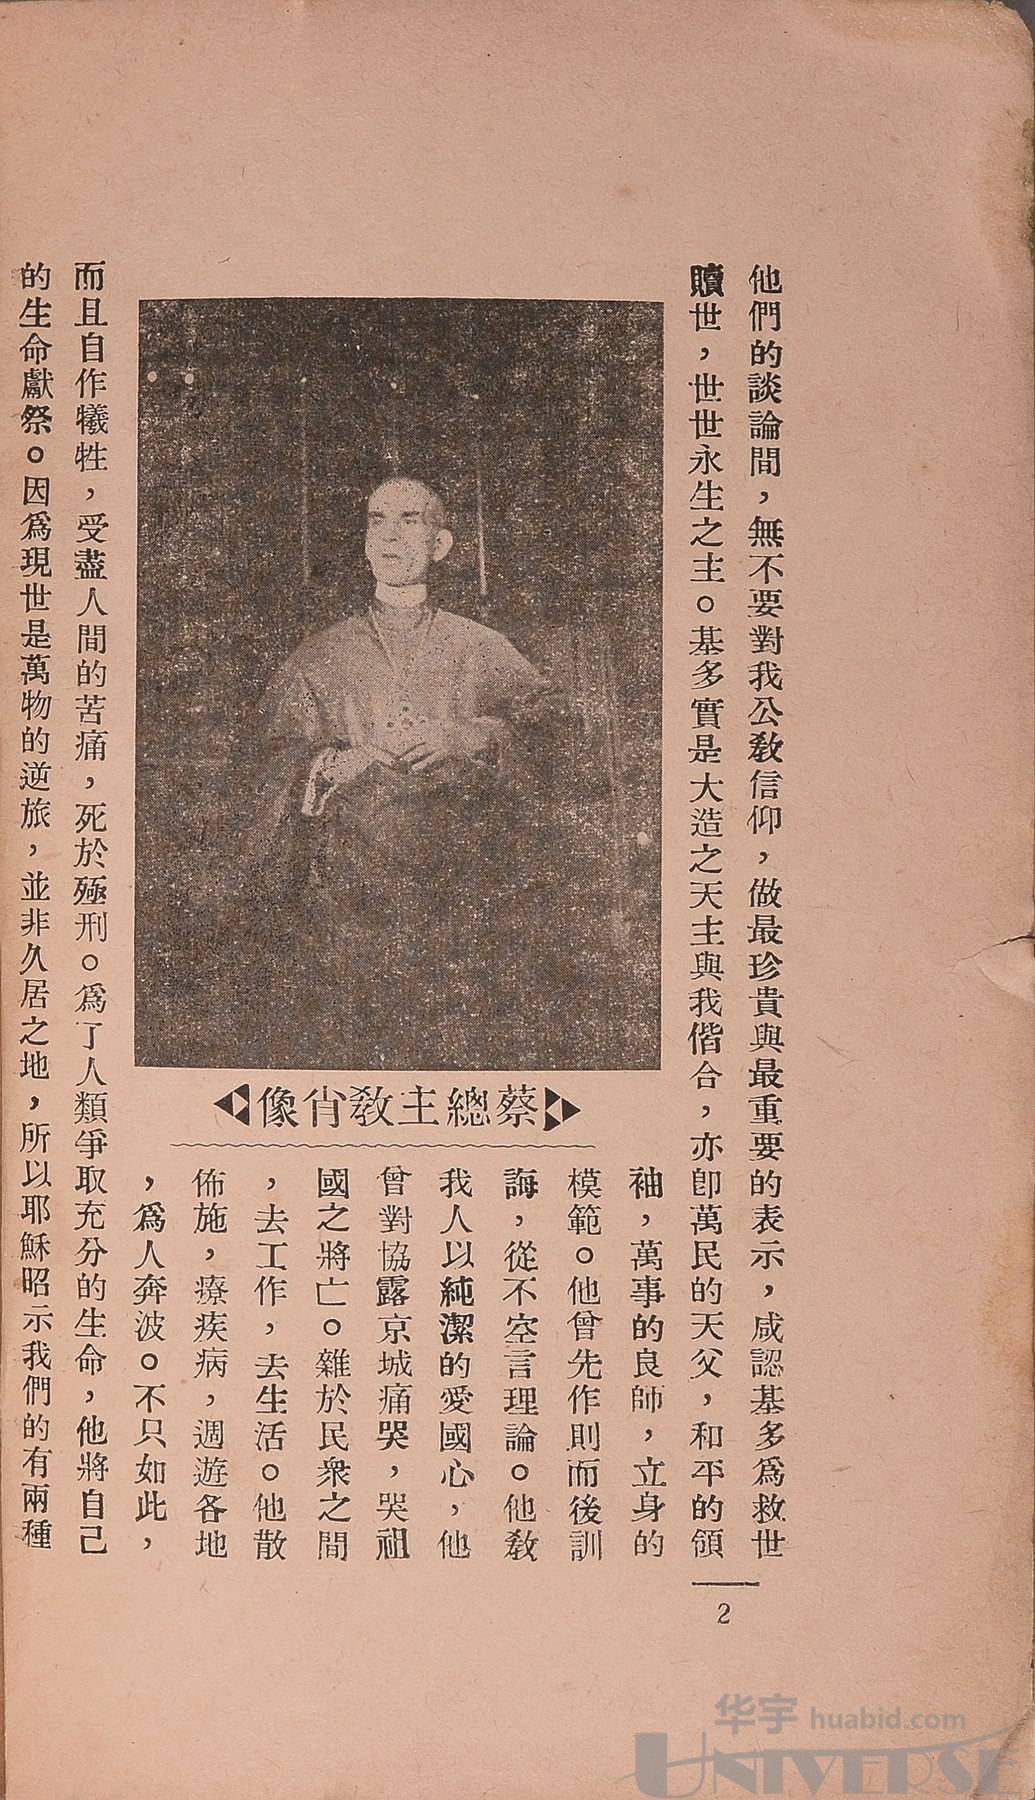 他們的談論間，無不要對我公教信仰，做最珍貴與最重要的表示，咸認基多爲救世
贖世，世世永生之主。基多實是大造之天主與我偕合，亦卽萬民的天父，和平的領
袖，萬事的良師，立身的
模範。他曾先作則而後訓
誨，從不空言理論。他教
我人以純潔的愛國心，他
曾對協露京城痛哭，哭祖
國之將亡。雜於民衆之間
，去工作，去生活。他散
佈施，療疾病，週遊各地
，爲人奔波。不只如此，
蔡總主教肖像
而且自作犧牲，受盡人間的苦痛，死於殛刑。爲了人類爭取充分的生命，他將自己
的生命獻祭。因爲現世是萬物的逆旅，並非久居之地，所以耶穌昭示我們的有兩種
2
华宇 huabid.com
UNIVERSE